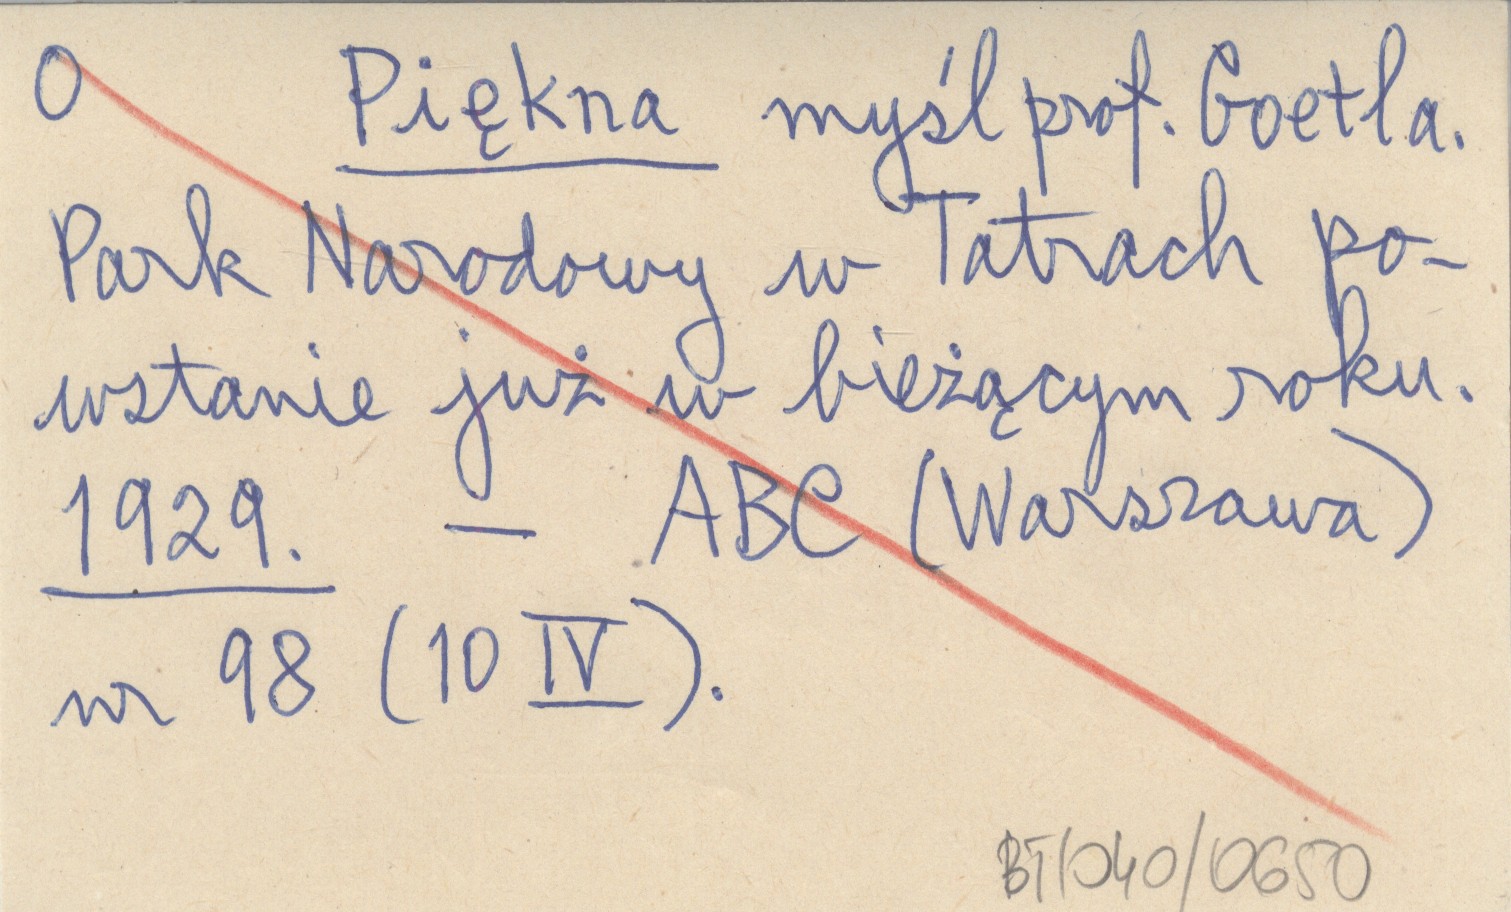 O Piękna myśl prof. Goetla.
Park Narodowy w Tatrach po-
wstanie już w bieżącym roku.
1929. — ABC (Warszawa)
nr 98 (10 IV).
BT/040/0650